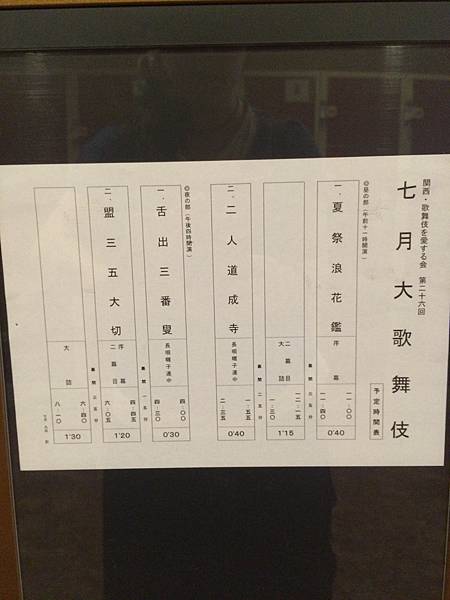 関西・歌舞伎を愛する会 第二十六回
七月大歌舞伎
予定時間表
◎昼の部(午前十一時開演)
一、夏祭浪花鑑
序幕
一一:〇〇
一一:四〇
0'40
幕間 三五分
二幕目
大詰
一二:一五
一:三〇
1'15
幕間 二五分
二、二人道成寺
長唄囃子連中
一:五五
二:三五
0'40
◎夜の部(午後四時開演)
一、舌出三番叟
長唄囃子連中
四:〇〇
四:三〇
0'30
幕間 一五分
二、盟三五大切
序幕
二幕目
四:四五
六:〇五
1'20
幕間 三五分
大詰
六:四〇
八:一〇
1'30